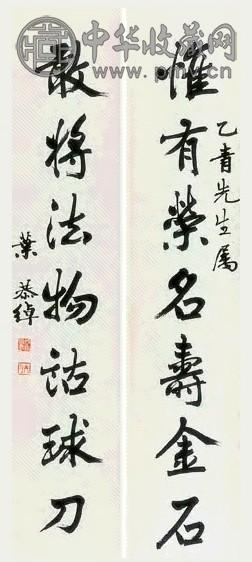 乙青先生属
惟有榮名壽金石
敢將法物詁球刀
葉恭綽
中华收藏网
www.pmcn.cn